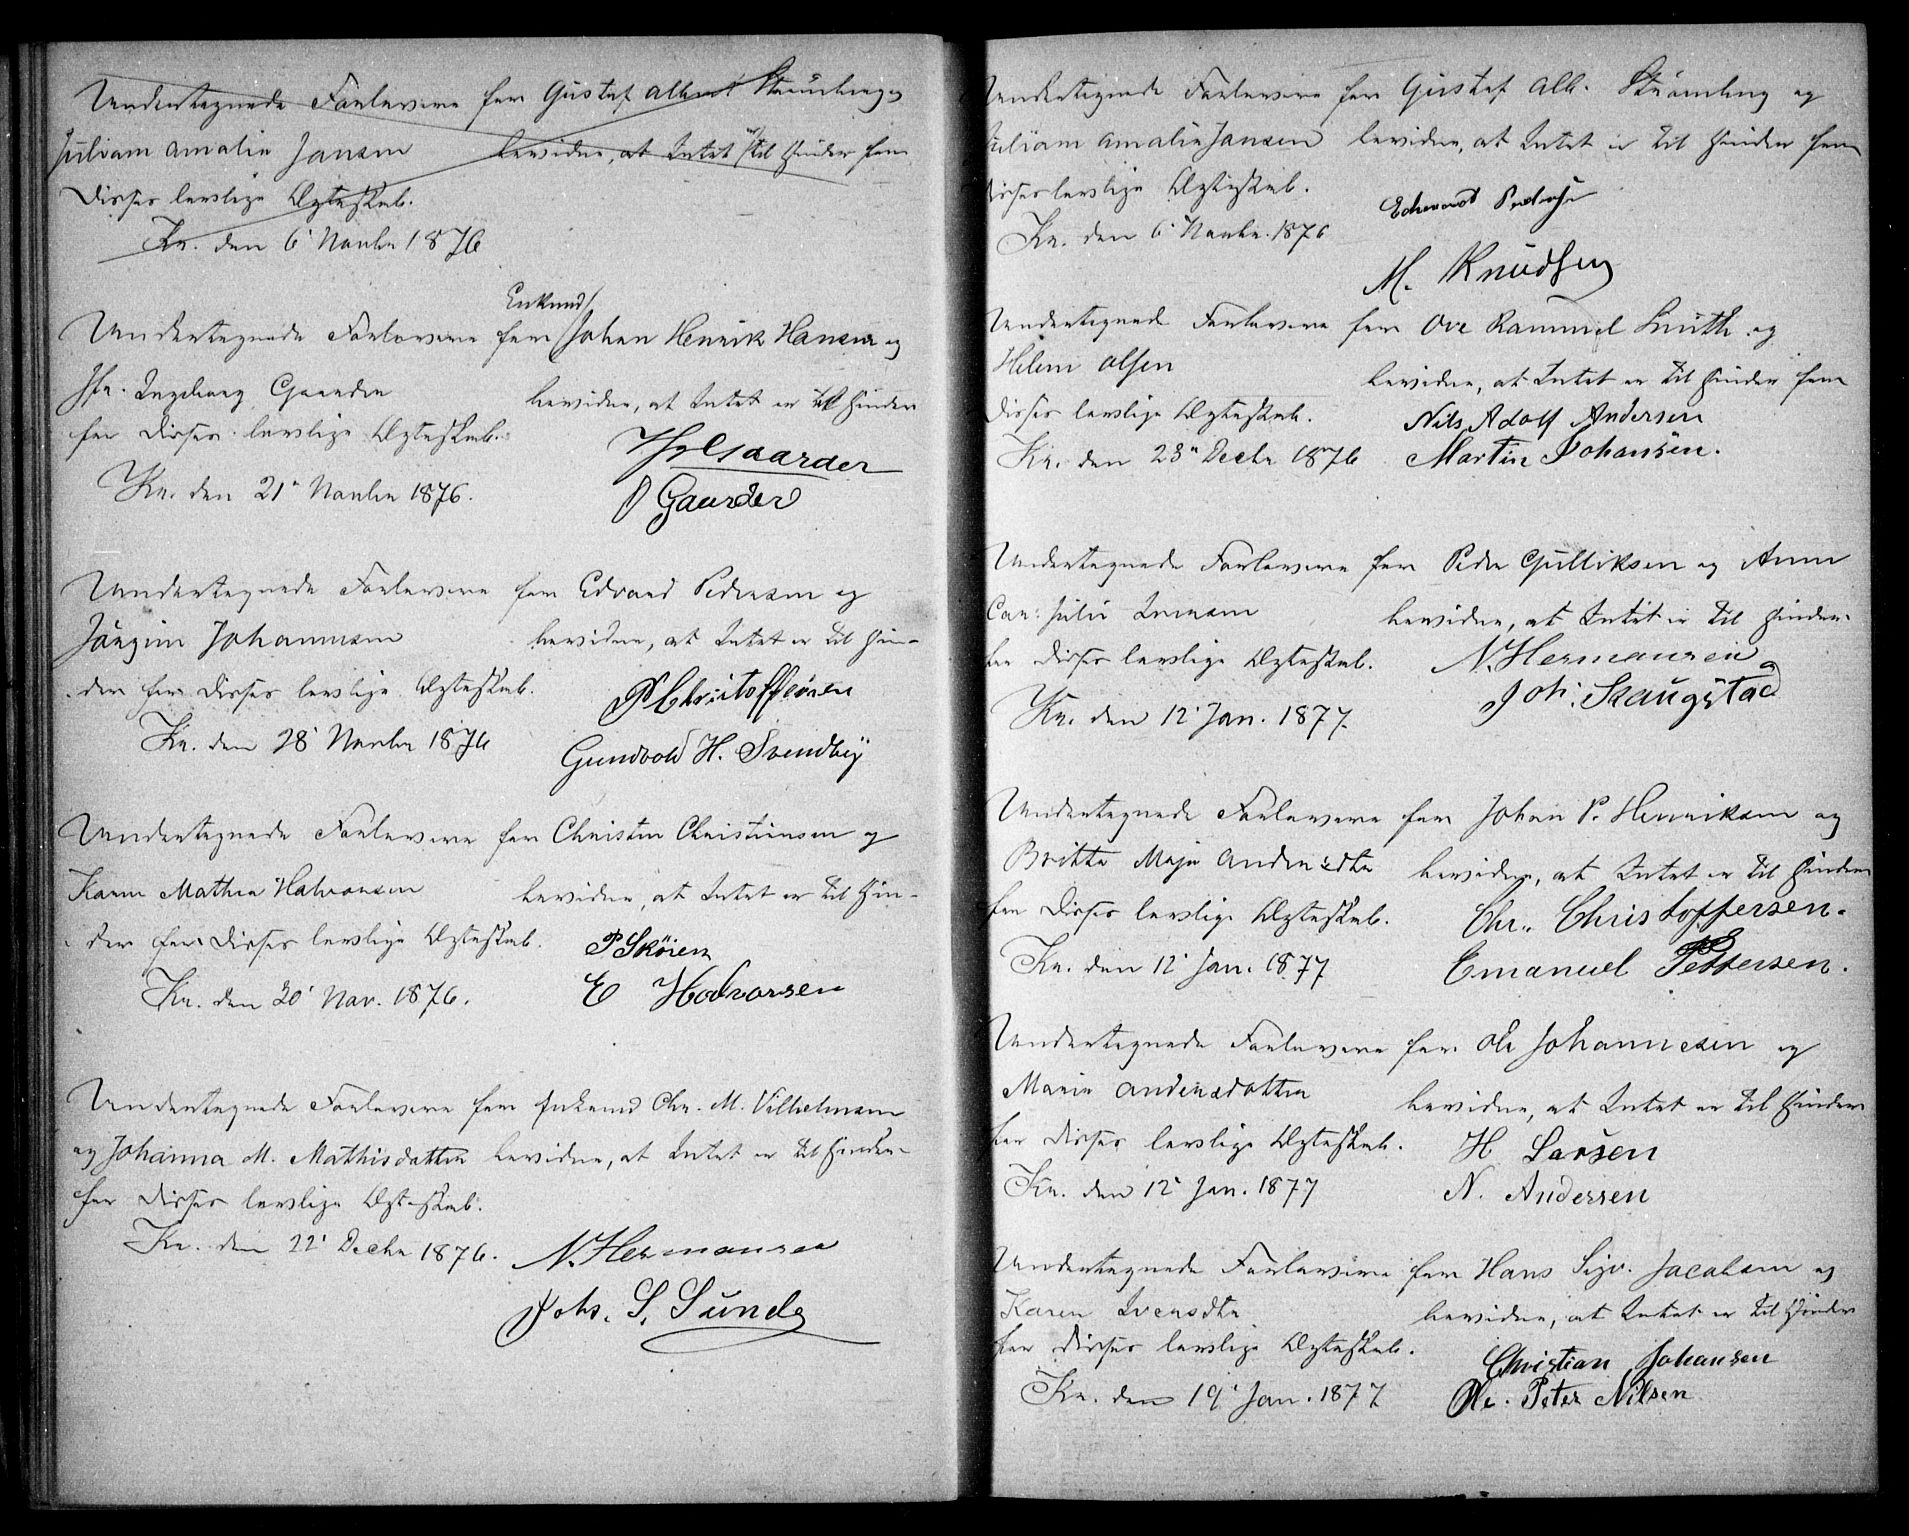 Undertegnede Forlovere for Gustaf Albert Strømberg og
Juliam Amalia Jansen bevidne, at Intet er til Hinder for
Disses lovlige Ægteskab.
Kr. den 6' Novbr 1876
Enkemd
Undertegnede Forlovere for Johan Henrik Hansen og
Jfr. Ingeborg Gaarder bevidne, at Intet er til Hinder
for Disses lovlige Ægteskab.
Gaarder
Kr. den 21' Novbr 1876.
Gaarder
Undertegnede Forlovere for Edvard Pedersen og
Jørgine Johannesen bevidne, at Intet er til Hin-
der for Disses lovlige Ægteskab.
Christoffersen
Kr. den 28' Novbr 1876
Gundvold H. Svendby
Undertegnede Forlovere for Christen Christiansen og
Karen Mathea Halvorsen bevidne, at Intet er til Hin-
der for Disses lovlige Ægteskab.
P Sköien
Kr. den 30' Nov. 1876.
E Halvorsen
Undertegnede Forlovere for Enkemd Chr. M. Vilhelmsen
og Johanna M. Mathisdatter bevidne, at Intet er til Hinder
for Disses lovlige Ægteskab.
Kr. den 22' Decbr 1876.
N. Hermansen
Johs. S. Sunde
Undertegnede Forlovere for Gustaf Alb. Strømberg og
Juliam Amalia Jansen bevidne, at Intet er til Hinder for
Disses lovlige Ægteskab.
Edvardt
Kr. den 6' Novbr. 1876
M. Knudsen
Undertegnede Forlovere for Ove Rammel Smith og
Helene Olsen bevidne, at Intet er til Hinder for
Disses lovlige Ægteskab.
Nils Adolf Andersen
Kr. den 28' Decbr 1876
Martin Johansen.
Undertegnede Forlovere for Peder Gulliksen og Anne
Car: Julie bevidne, at Intet er til Hinder
for Disses lovlige Ægteskab.
N. Hermansen
Kr. den 12' Jan. 1877.
Joh. Skaugstad
Undertegnede Forlovere for Johan P. Henriksen og
Britta Maja Andersdtr bevidne, at Intet er til Hinder
for Disses lovlige Ægteskab.
Chr. Christoffersen.
Kr. den 12' Jan. 1877
Emanuel Pettersen.
Undertegnede Forlovere for Ole Johannesen og
Maria Andersdatter bevidne, at Intet er til Hinder
for Disses lovlige Ægteskab.
H Larsen
Kr. den 12' Jan. 1877
N. Andersen
Undertegnede Forlovere for Hans Sigv. Jacobsen og
Karen Svensdtr bevidne, at Intet er til Hinder
for Disses lovlige Ægteskab.
Christian Johansen
Kr. den 19' Jan. 1877
Ole. Peter Nilsen